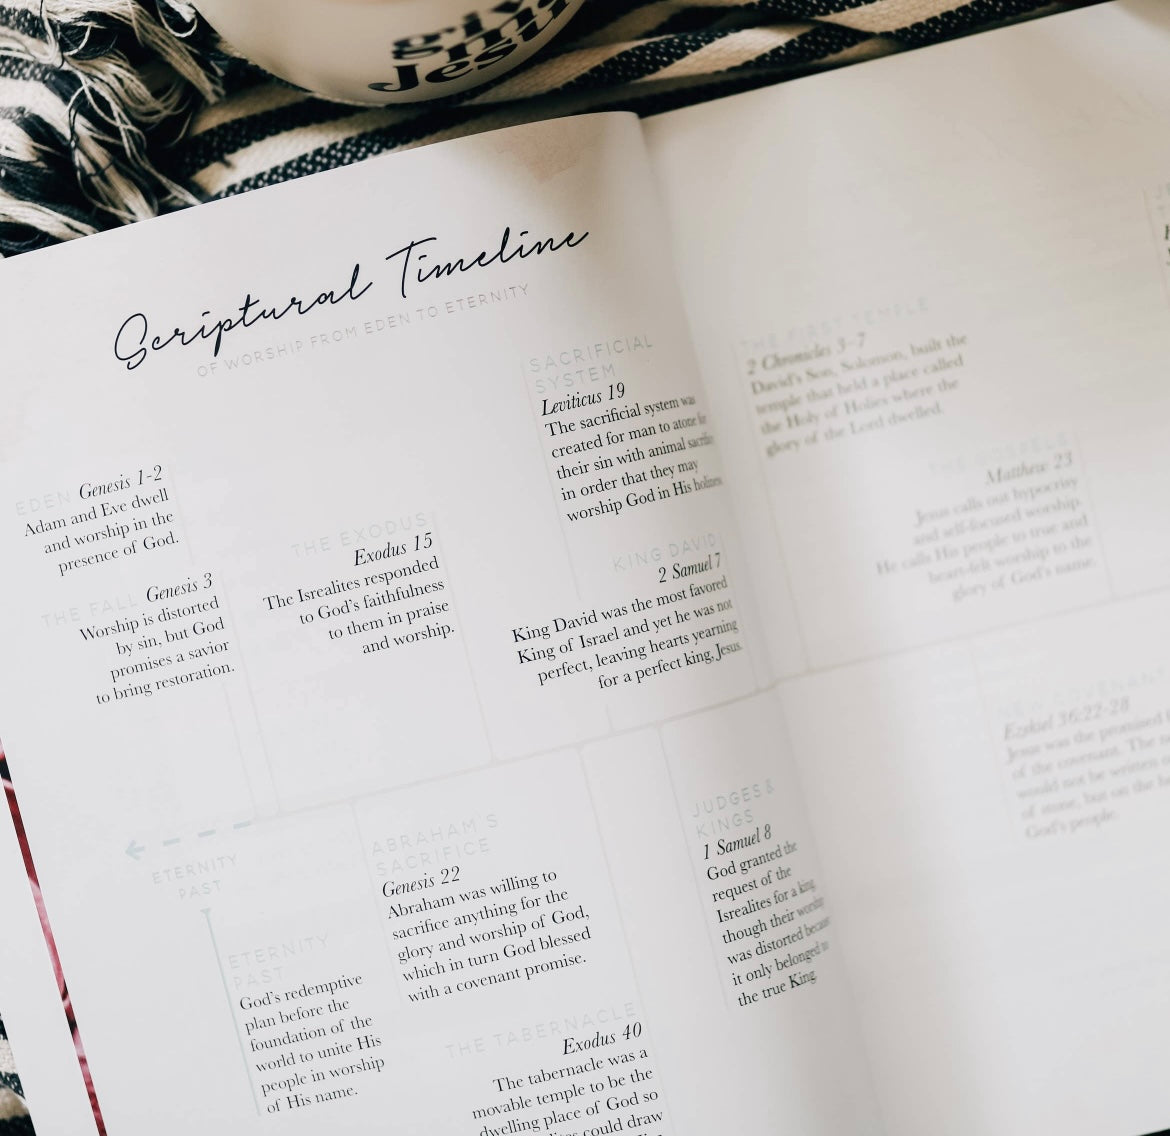 Jesus
Scriptural Timeline
OF WORSHIP FROM EDEN TO ETERNITY
EDEN Genesis 1-2
Adam and Eve dwell
and worship in the
presence of God.
THE FALL Genesis 3
Worship is distorted
by sin, but God
promises a savior
to bring restoration.
THE EXODUS
Exodus 15
The Isrealites responded
to God's faithfulness
to them in praise
and worship.
SACRIFICIAL
SYSTEM
Leviticus 19
The sacrificial system was
created for man to atone for
their sin with animal
in order that they may
worship God in His holiness.
KING DAVID
2 Samuel 7
King David was the most favored
King of Israel and yet he was not
perfect, leaving hearts yearning
for a perfect king, Jesus.
ETERNITY
PAST
ETERNITY
PAST
God's redemptive
plan before the
foundation of the
world to unite His
people in worship
of His name.
ABRAHAM'S
SACRIFICE
Genesis 22
Abraham was willing to
sacrifice anything for the
glory and worship of God,
which in turn God blessed
with a covenant promise.
THE TABERNACLE
Exodus 40
The tabernacle was a
movable temple to be the
dwelling place of God so
could draw
JUDGES &
KINGS
1 Samuel 8
God granted the
request of the
Isrealites for a king,
though their worship
was distorted because
it only belonged to
the true King.
THE FIRST TEMPLE
2 Chronicles 3-7
David's Son, Solomon, built the
temple that held a place called
the Holy of Holies where the
glory of the Lord dwelled.
THE GOSPELS
Matthew 23
Jesus calls out hypocrisy
and self-focused worship.
He calls His people to true and
heart-felt worship to the
glory of God's name.
NEW COVENANT
Ezekiel 36:22-28
Jesus was the promised
of the covenant. The
would not be written
of stone, but on the
God's people.